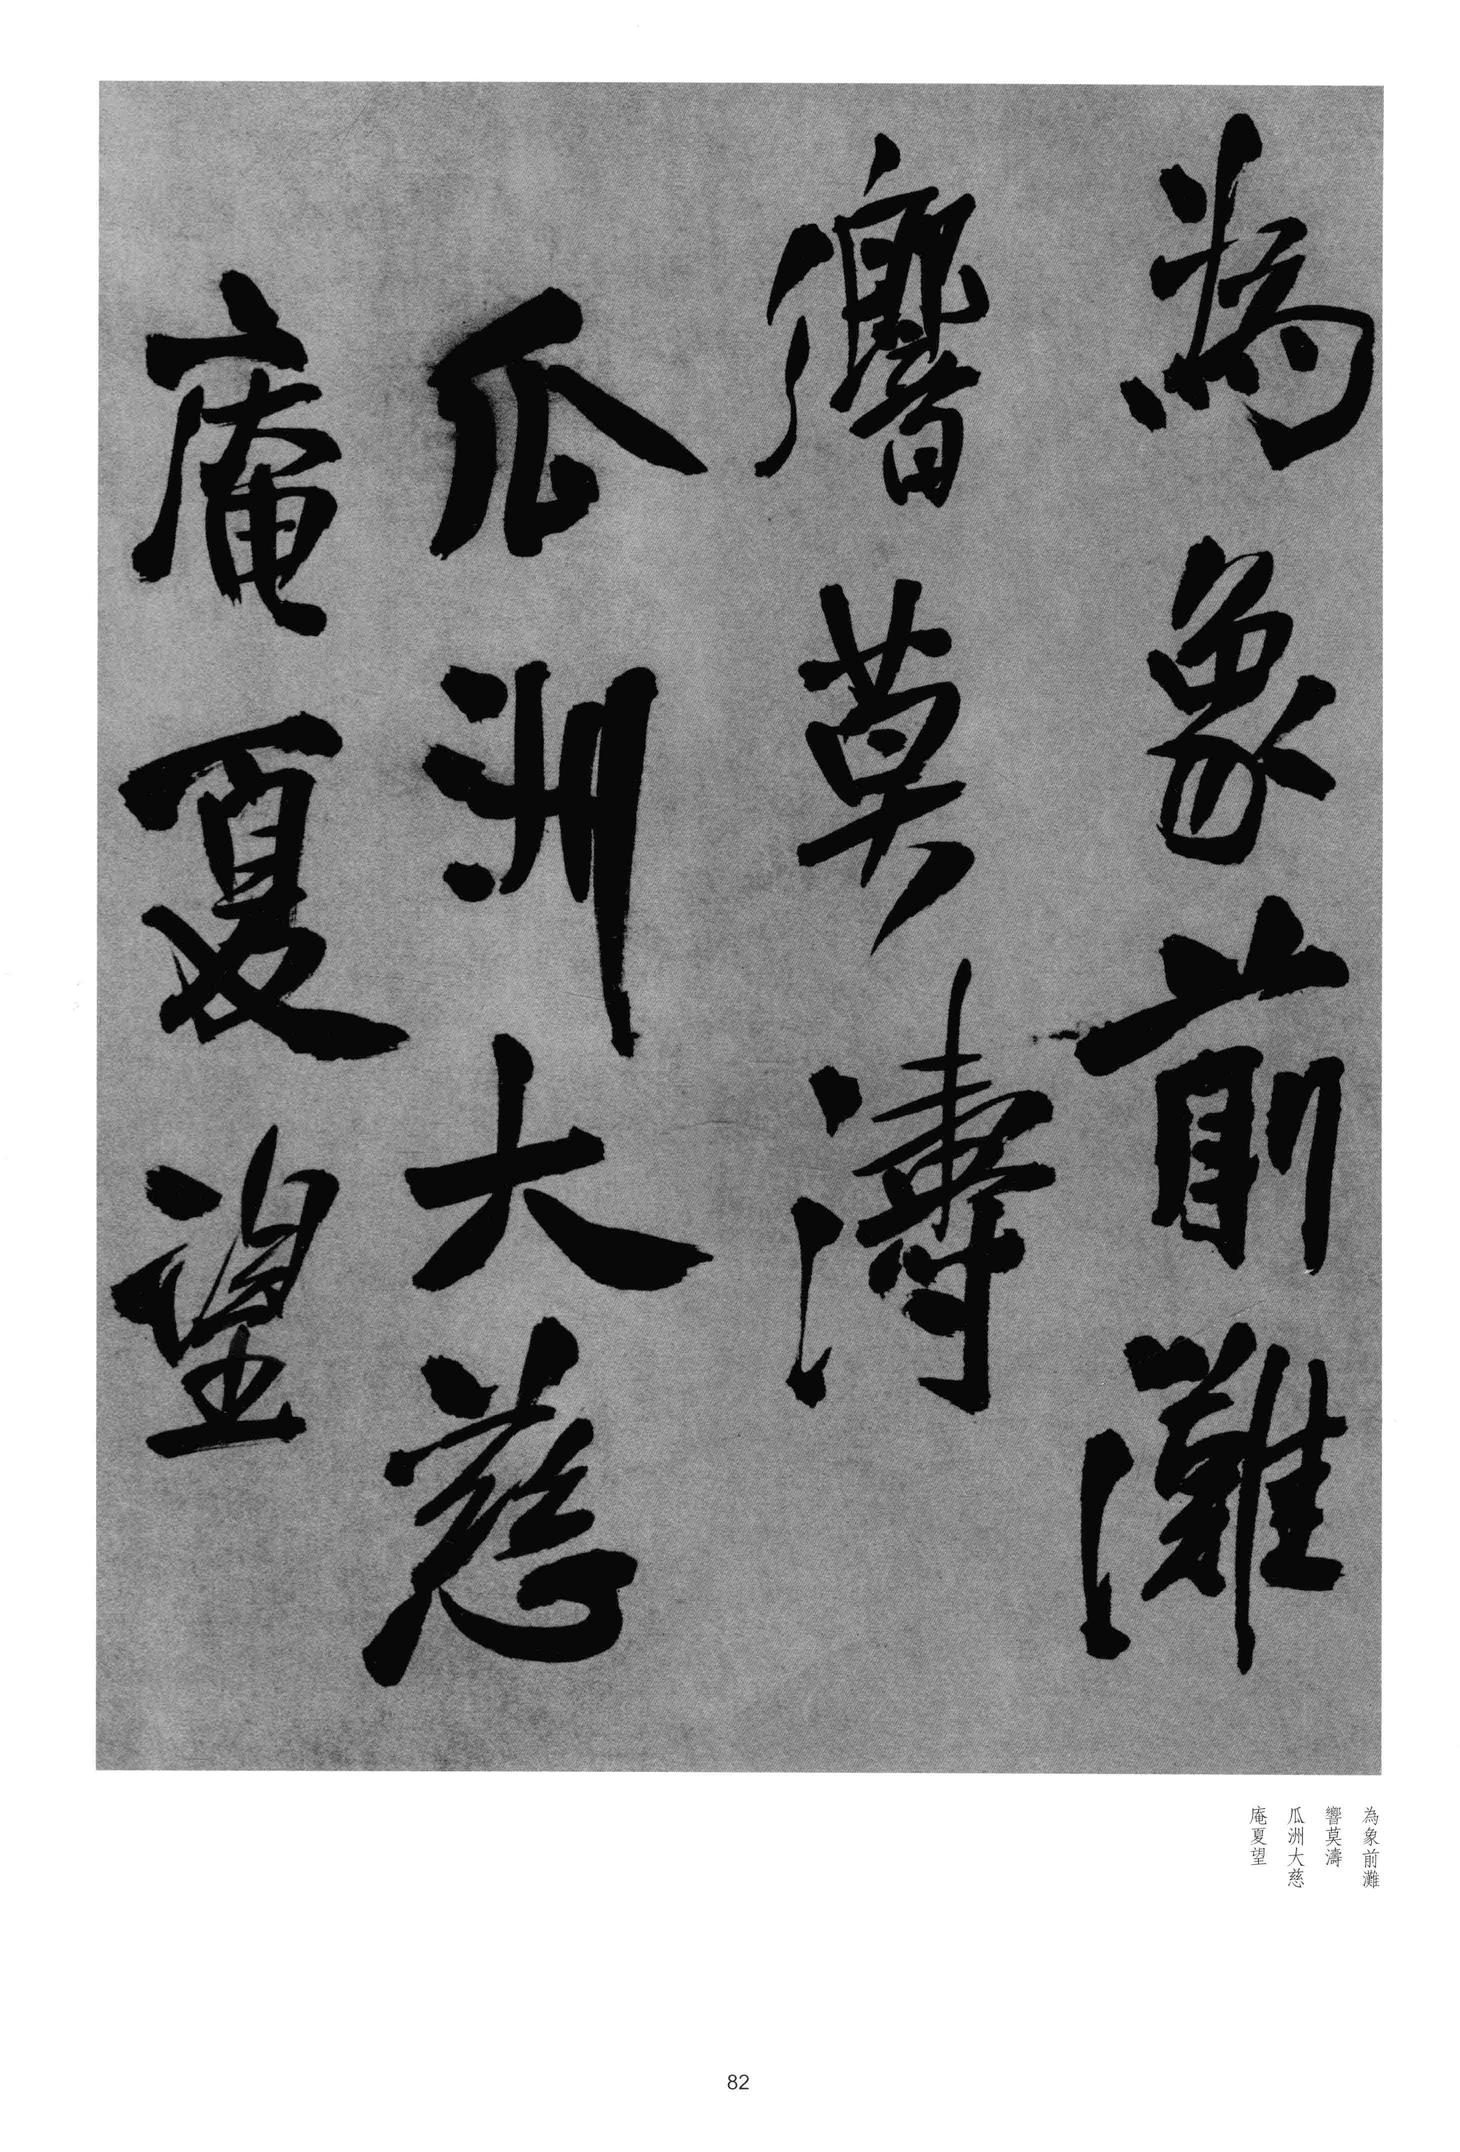 為象前灘
響莫濤
瓜洲大慈
庵夏望
為象前灘
響莫濤
瓜洲大慈
庵夏望
82